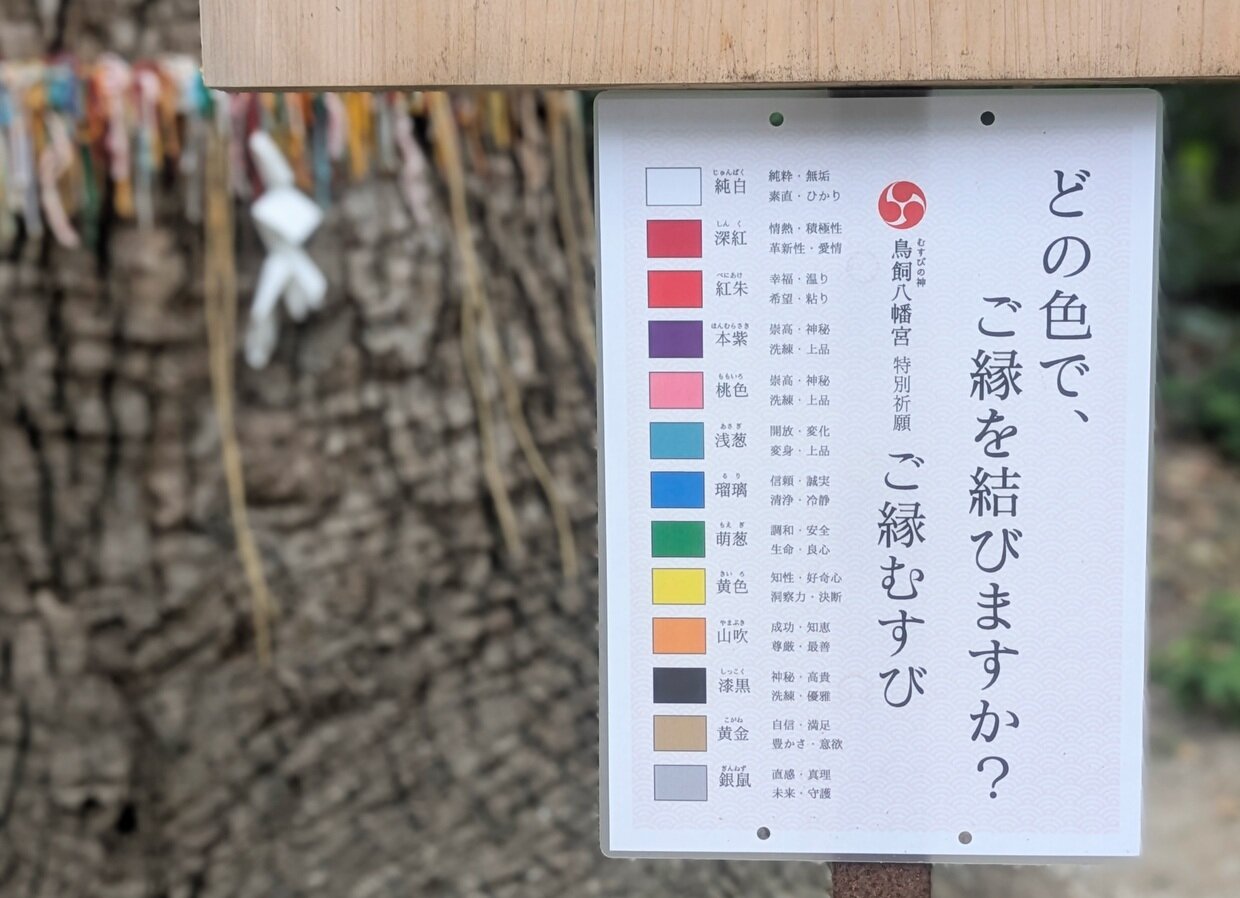 どの色で、
ご縁を結びますか？
むすびの神
鳥飼八幡宮 特別祈願 ご縁むすび
じゅんぱく
純白 純粋・無垢
素直・ひかり
しんく
深紅 情熱・積極性
革新性・愛情
べにあけ
紅朱 幸福・温り
希望・粘り
ほんむらさき
本紫 崇高・神秘
洗練・上品
ももいろ
桃色 崇高・神秘
洗練・上品
あさぎ
浅葱 開放・変化
変身・上品
るり
瑠璃 信頼・誠実
清浄・冷静
もえぎ
萌葱 調和・安全
生命・良心
きいろ
黄色 知性・好奇心
洞察力・決断
やまぶき
山吹 成功・知恵
尊厳・最善
しっこく
漆黒 神秘・高貴
洗練・優雅
こがね
黄金 自信・満足
豊かさ・意欲
ぎんねず
銀鼠 直感・真理
未来・守護